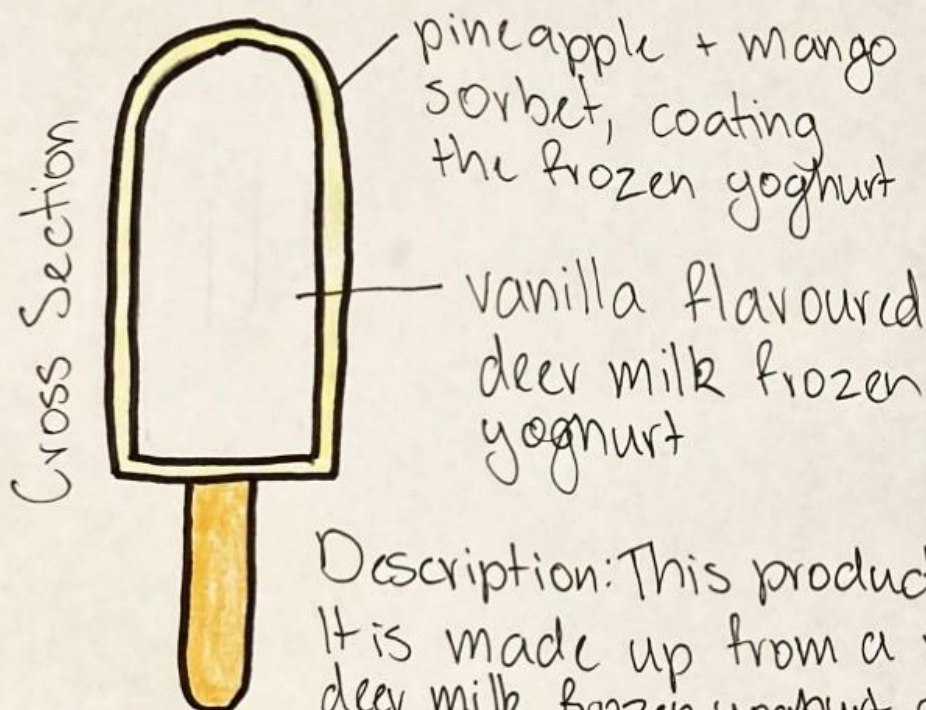 pineapple + mango
sorbet, coating
the frozen yoghurt
Cross Section
vanilla flavoured
deer milk frozen
yoghurt
Description: This produc
It is made up from a
deer milk frozen yoghurt